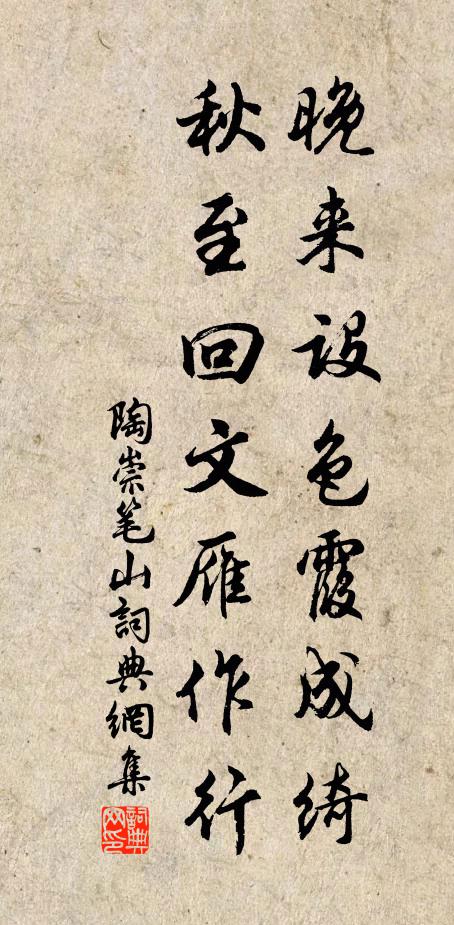 晚来设色霞成绮
秋至回文雁作行
陶崇笔山詞典網集
詞典网印